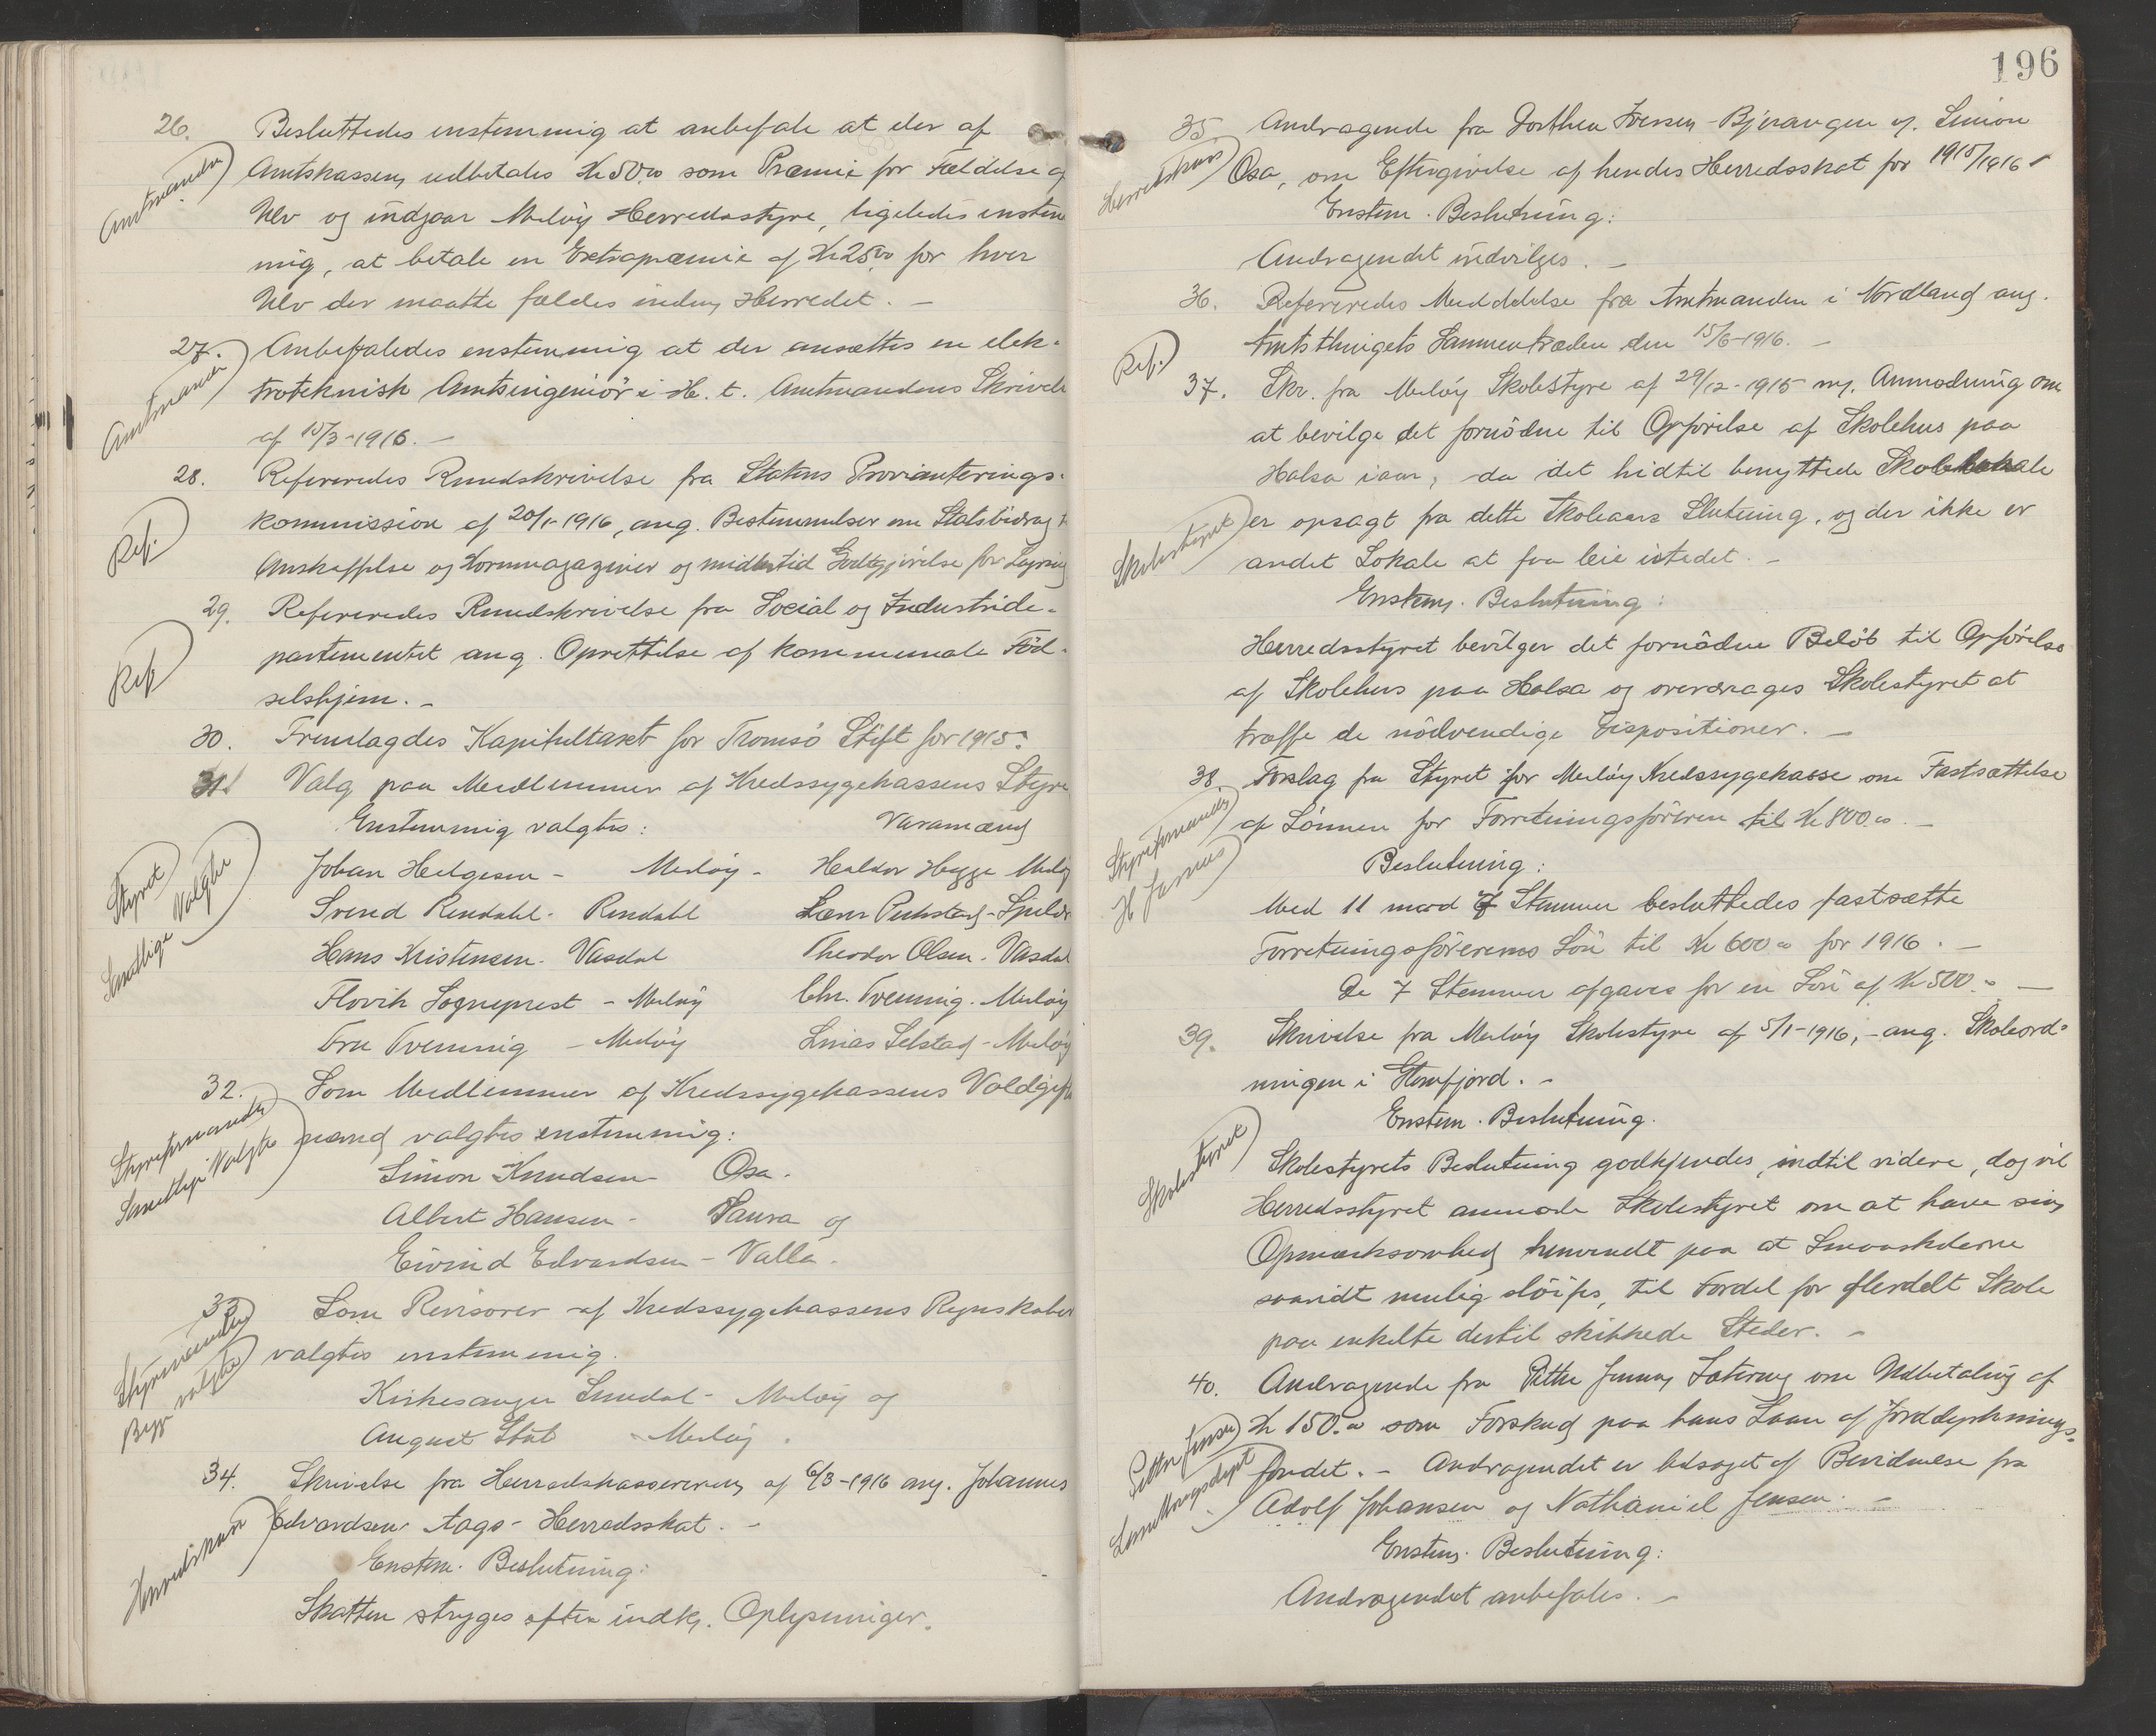 26. Besluttedes enstemmig at anbefale at der af
Amtmanden
Amtskassen udbetales Kr 50.00 som Præmie for Fældelse af
Ulv og indgaar Meløy Herredsstyre, ligeledes enstem
mig, at betale en Extrapræmie af Kr 25.00 for hver
Ulv der maatte fældes inden Herredet. –
27. Anbefaledes enstemmig at der ansættes en elek-
Amtmanden
troteknisk Amtsingeniör i H. t. Amtmandens Skrivelse
af 10/3-1916. –
28. Refereredes Rundskrivelse fra Statens Provianterings-
Ref.
kommission af 20/1-1916, ang. Bestemmelser om Statsbidrag
Anskaffelse og Kornmagaziner og midlertid Godtgjörelse for Lagring
29. Refereredes Rundskrivelse fra Social og Industride-
Ref
partementet ang. Oprettelse af kommunale Föd-
selshjem. –
30. Fremlagdes Kapiteltaxt for Tromsö Stift for 1915.
31. Valg paa Medlemmer af Kredssygekassens Styre
Enstemmig valgtes: Varamænd
Styret
Samtlige Valgte
Johan Helgesen – Meløy – Haldor Hegge Meløy
Svend Rendahl - Rendahl
Hans Kristensen - Vasdal Theodor Olsen - Vasdal
Flovik Sogneprest – Meløy Chr. Tvenning - Meløy
Fru Tvenning – Meløy Linias Selstad - Meløy
32. Som Medlemmer af Kredssygekassens Voldgifts
Styreformanden
Samtlige Valgte
mænd valgtes enstemmig:
Simon Knudsen Osa.
Albert Hansen - Saura og
Eivind Edvardsen – Valla.
33. Som Revisorer af Kredssygekassens Regnskaber
Styreformanden
Begge valgte
valgtes enstemmig.
Kirkesanger Smedal - Meløy og
August Støt Meløy.
34. Skrivelse fra Herredskassereren af 6/3-1916 ang. Johannes
Edvardsen Aags- Herredsskat. –
Herredskas
Enstem. Beslutning:
Skatten stryges efter indk. Oplysninger.
196
35 Andragende fra Dorthea Iversen - Bjerangen v. Simon
Herredskas
Osa, om Eftergivelse af hendes Herredsskat for 1915/1916
Enstem. Beslutning:
Andragendet indvilges. –
36. Refereredes Meddelelse fra Amtmanden i Nordland ang.
Ref.
Amtsthingets Sammentræden den 15/6-1916. –
37. Skr. fra Meløy Skolestyre af 29/12-1915 m/. Anmodning om
at bevilge det fornödne til Opförelse af Skolehus paa
Halsa iaar, da det hidtil benyttede Skolelokale
Skolestyret
er opsagt fra dette Skoleaars Slutning, og der ikke er
andet Lokale at faa leie istedet. –
Enstem. Beslutning:
Herredsstyret bevilger det fornödne Belöb til Opförelse
af Skolehus paa Halsa og overdrages Skolestyret at
træffe de nödvendige Dispositioner. –
38. Forslag fra Styret for Meløy Kredssygekasse om Fastsættelse
Styreformanden
af Lönnen for Forretningsföreren til Kr 800.00. –
Beslutning:
Med 11 mod 7 Stemmer besluttedes fastsætte
Forretningsförerens Lön til Kr 600.00 for 1916. –
De 7 Stemmer afgaves for en Lön af Kr 500.00 –
39. Skrivelse fra Meløy Skolestyre af 5/1-1916, - ang. Skoleord-
ningen i Glomfjord. –
Skolestyret
Enstem. Beslutning.
Skolestyrets Beslutning godkjendes, indtil videre, dog vil
Herredsstyret anmode Skolestyret om at have sin
Opmærksomhed henvendt paa at Smaaskolerne
saavidt mulig slöifes, til Fordel for flerdelt Skole
paa enkelte dertil skikkede Steder. –
40. Andragende fra Petter Jensen om Udbetaling af
Petter Jensen
Landbrugsdept
Kr 150.00 som Forskud paa hans Laan af Jorddyrknings-
fondet. – Andragendet er ledsaget af Bevidnelse fra
Adolf Johansen og Nathaniel Jensen. –
Enstem. Beslutning:
Andragendet anbefales. –